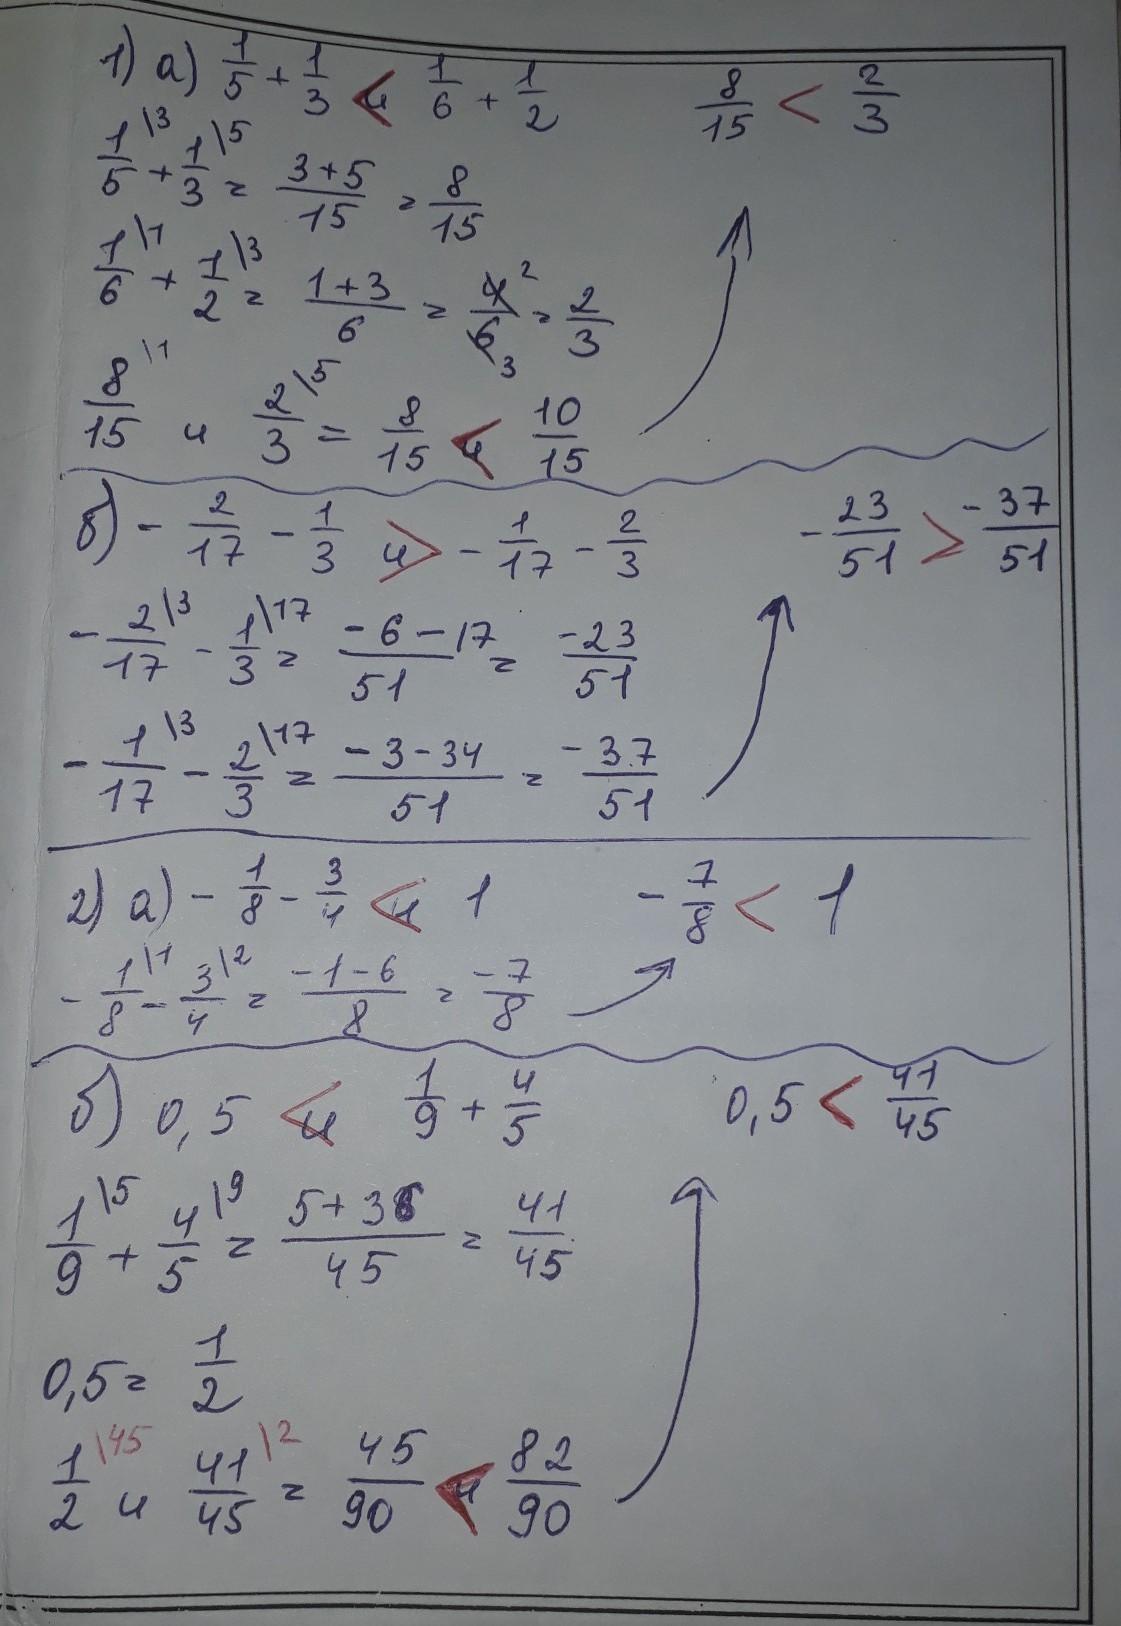 1) а) 1/5 + 1/3 < и 1/6 + 1/2    8/15 < 2/3
1/5\3 + 1/3\5 = (3+5)/15 = 8/15
1/6\1 + 1/2\3 = (1+3)/6 = 4/6 2 3 = 2/3
8/15\1 и 2/3\5 = 8/15 < и 10/15
б) - 2/17 - 1/3 и > - 1/17 - 2/3    - 23/51 > - 37/51
- 2/17\3 - 1/3\17 = (-6-17)/51 = -23/51
- 1/17\3 - 2/3\17 = (-3-34)/51 = -37/51
2) а) - 1/8 - 3/4 < и 1    - 7/8 < 1
- 1/8\1 - 3/4\2 = (-1-6)/8 = -7/8
б) 0,5 < и 1/9 + 4/5    0,5 < 41/45
1/9\5 + 4/5\9 = (5+36)/45 = 41/45
0,5 = 1/2
1/2\45 и 41/45\2 = 45/90 < и 82/90